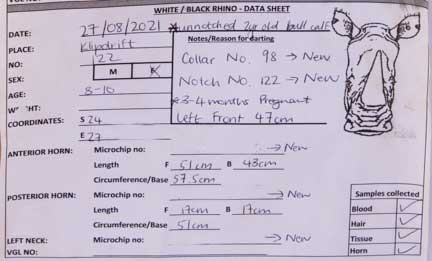 WHITE / BLACK RHINO - DATA SHEET
DATE: 27/08/2021 * unnotched 2yr old bull calf
PLACE: Klipdrift
Notes/Reason for darting
NO: 122
Collar No. 98 → New
SEX: M F
Notch No. 122 → New
AGE: 8-10
* 3-4 months Pregnant
HT:
Left Front 47cm
COORDINATES: S 24
E 27
ANTERIOR HORN: Microchip no: → New
Length F 51cm B 43cm
Circumference/Base 57.5cm
POSTERIOR HORN: Microchip no: → New
Length F 17cm B 17cm
Circumference/Base 51cm
LEFT NECK: Microchip no: → New
VGL NO:
Samples collected
Blood ✓
Hair ✓
Tissue ✓
Horn ✓